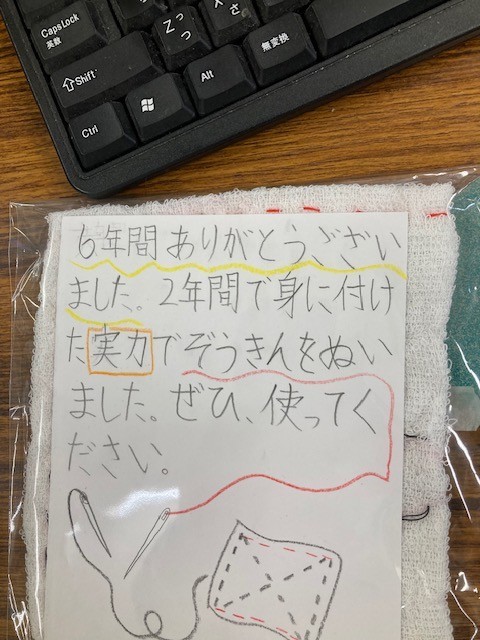 CapsLock
英数
Shift
Ctrl
Alt
Z
っ
つ
X
さ
無変換
6年間ありがとうござい
ました。2年間で身に付け
た実力でぞうきんをぬい
ました。ぜひ、使ってく
ださい。